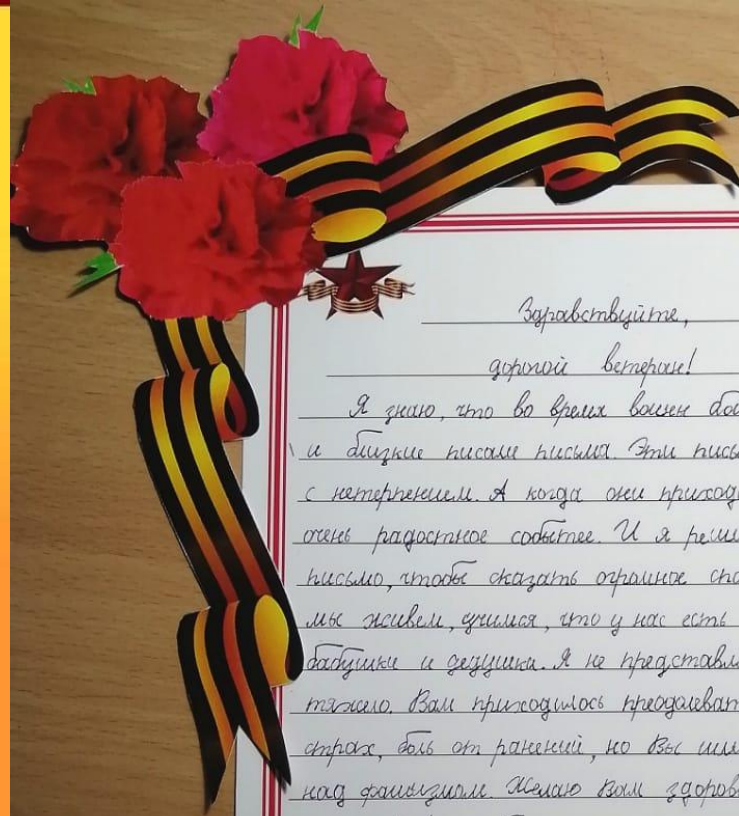 Здравствуйте,
дорогой ветеран!
Я знаю, что во время войн
и близкие писали письма. Эти
с нетерпением. А когда они
очень радостное событие. И я
письмо, чтобы сказать огромное
мы живем, учимся, что у нас есть
бабушки и дедушки. Я не
тяжело. Вам приходилось
страх, боль от ранений, но Вы
над фашизмом. Желаю Вам